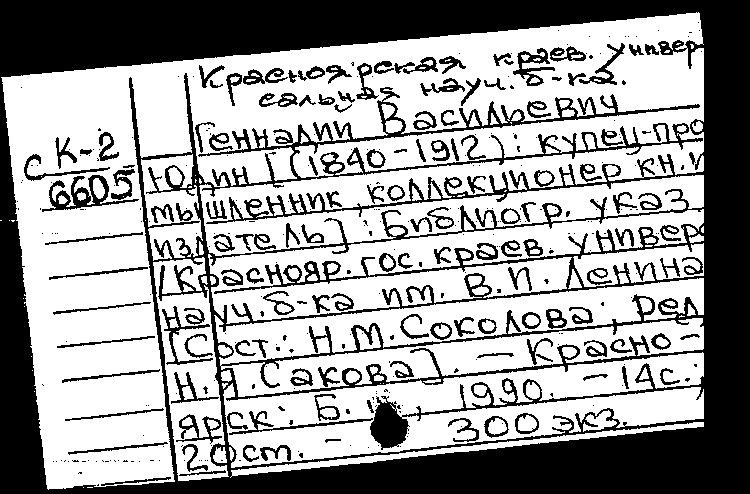 Красноярская краев. универ-
сальная науч. б-ка.
Геннадий Васильевич
с К-2
6605
Юдин [(1840-1912): купец-про
мышленник, коллекционер кн. и
издатель]: Библиогр. указ
/Краснояр. гос. краев. универс
науч. б-ка им. В.И. Ленина
[Сост.: Н.М. Соколова; ред
Н.Я. Сакова]. — Красно-
ярск: Б. и., 1990. - 14с.;
20см. - 300 экз.